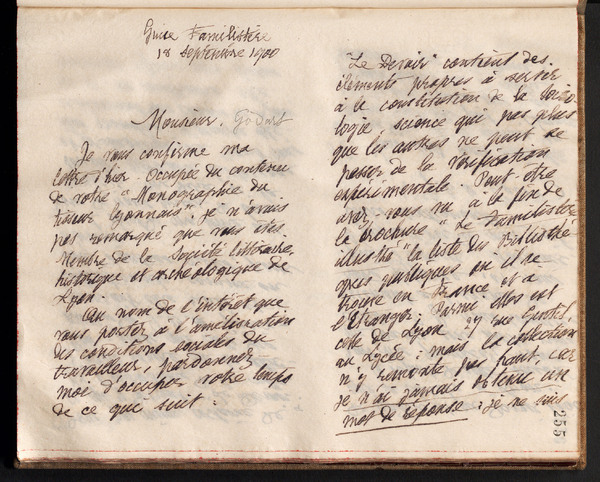 Guise Familistère
18 septembre 1900
Monsieur Godart
Je vous confirme ma
lettre d'hier. Occupée du contenu
de votre "Monographie du
tisseur lyonnais", je n'avais
pas remarqué que vous êtes
Membre de la Société littéraire,
historique et archéologique de
Lyon.
Au nom de l'intérêt que
vous portez à l'amélioration
des conditions sociales du
travailleur, pardonnez
moi d'occuper votre temps
de ce qui suit :
"Le Devoir" contient des
éléments propres à servir
à la constitution de la socio-
logie, science qui pas plus
que les autres ne peut se
passer de la vérification
expérimentale. Peut être
avez-vous vu à la fin de
la brochure "Le Familistère
illustré" la liste des Bibliothè
ques publiques où il se
trouve en France et à
l'Etranger. Parmi elles est
celle de Lyon 27 rue Gentil,
au Lycée : mais la collection
n'y remonte pas haut, car
je n'ai jamais obtenu un
mot de réponse : je ne suis
255